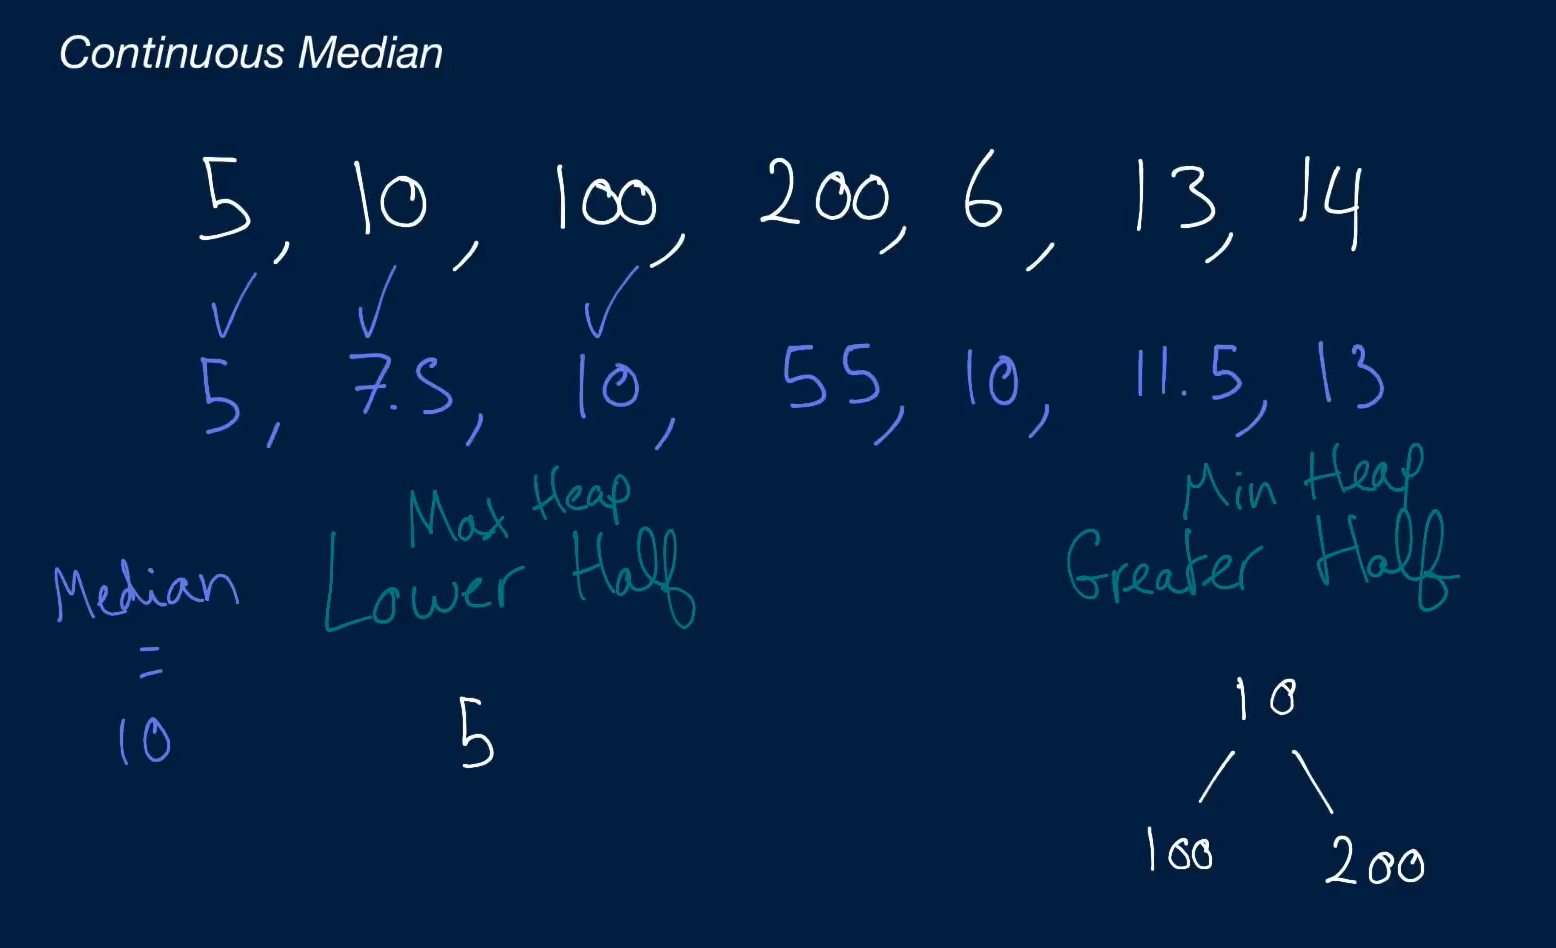 Continuous Median
5, 10, 100, 200, 6, 13, 14
5, 7.5, 10, 55, 10, 11.5, 13
Max Heap
Lower Half
Min Heap
Greater Half
Median
=
10
5
10
100 200